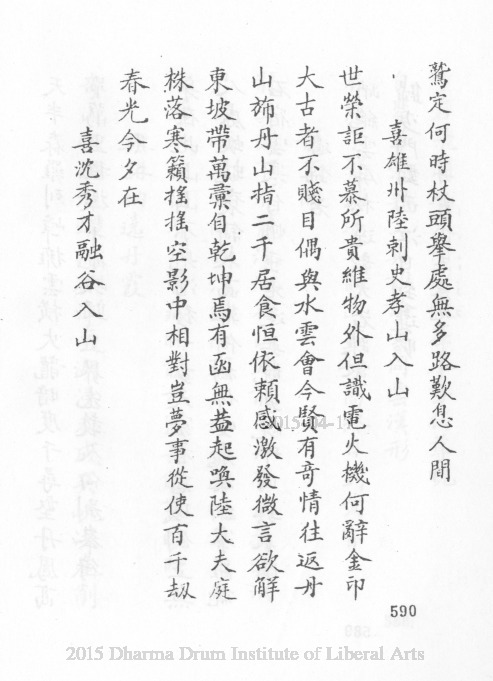 鷲定何時杖頭舉處無多路歎息人間
喜雄州陸刺史孝山入山
世榮詎不慕所貴維物外但識電火機何辭金印
大古者不賤目偶與水雲會今賢有奇情往返丹
山斾丹山指二千居食恒依賴感激發微言欲解
東坡帶萬彙自乾坤焉有函無蓋起喚陸大夫庭
株落寒籟搖搖空影中相對豈夢事從使百千劫
春光今夕在
喜沈秀才融谷入山
590
2015 Dharma Drum Institute of Liberal Arts